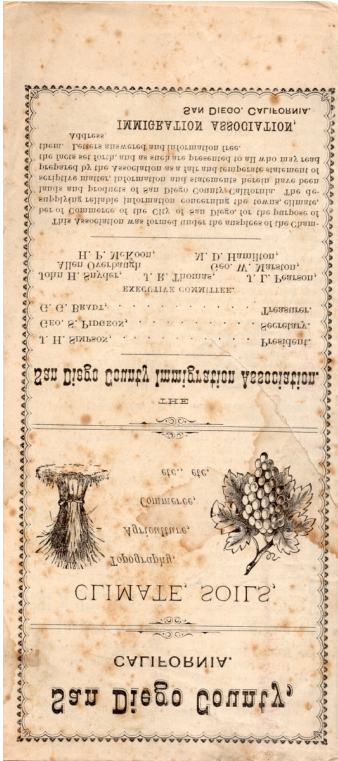 San Diego County,
CALIFORNIA.
CLIMATE, SOILS,
Topography,
Agriculture,
Commerce,
etc., etc.
THE
San Diego County Immigration Association.
J. H. SIMPSON, . . . . . . . . . . President.
GEO. S. PIDGEON, . . . . . . . . . . Secretary.
G. G. BRADT, . . . . . . . . . . Treasurer.
EXECUTIVE COMMITTEE.
John H. Snyder, J. R. Thomas, J. L. Pearson,
Allen Overbaugh Geo. W. Marston,
H. P. McKoon, M. D. Hamilton,
This Association was formed under the auspices of the Cham-
ber of Commerce of the City of San Diego, for the purpose of
supplying reliable information concerning the towns, climate,
lands and products of San Diego County, California. The de-
scriptive matter, information and statements herein have been
prepared by the Association as a fair and temperate statement of
the facts set forth, and as such are presented to all who may read
them. Letters answered and information free.
Address
IMMIGRATION ASSOCIATION,
SAN DIEGO, CALIFORNIA.